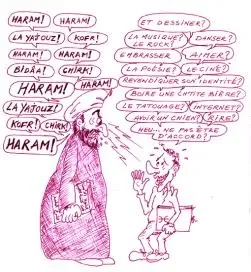 HARAM! HARAM!
LA YAJOUZ! KOFR!
HARAM! HARAM!
BIDÂA! CHIRK!
HARAM! HARAM!
LA YAJOUZ!
KOFR! CHIRK!
HARAM!
ET DESSINER?
LA MUSIQUE? DANSER?
LE ROCK?
EMBRASSER? AIMER?
LA POÉSIE? LE CINÉ?
REVENDIQUER SON IDENTITÉ?
BOIRE UNE CHTITE BIÈRE?
LE TATOUAGE? INTERNET?
AVOIR UN CHIEN? RIRE?
HEU... NE PAS ÊTRE
D'ACCORD?